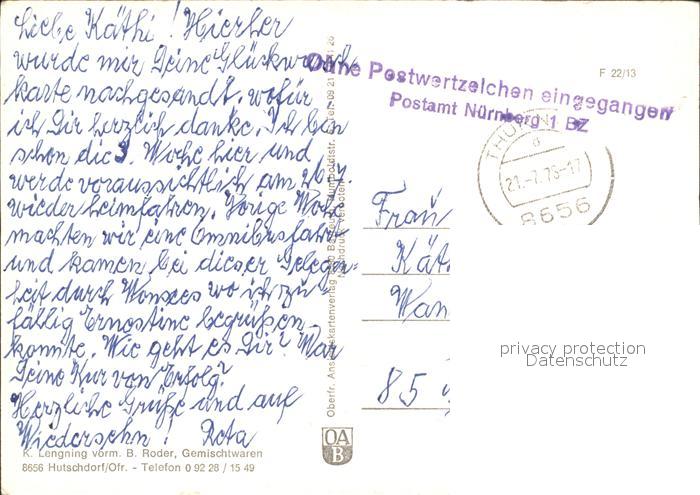 Liebe Käthi! Hierher
wurde mir Deine Glückwunsch-
karte nachgesandt, wofür
ich Dir herzlich danke. Ich bin
schon die 3. Woche hier und
werde voraussichtlich am 26.7.
wieder heimfahren. Vorige Woche
machten wir eine Omnibusfahrt
und kamen bei dieser Gelegen-
heit durch Wonsees wo ich zu-
fällig Ernestine begrüßen
konnte. Wie geht es Dir? War
Deine Kur von Erfolg?
Herzliche Grüße und auf
Wiedersehn! Reta
K. Lengning vorm. B. Roder, Gemischtwaren
8656 Hutschdorf/Ofr. - Telefon 0 92 28 / 15 49
Oberfr. Ansichtskartenverlag
Nachdruck verboten
OA
B
F 22/13
Ohne Postwertzeichen eingegangen
Postamt Nürnberg 1 BZ
THURN
a
21.-7.76-17
8656
Frau
Kät
Wan
85
privacy protection
Datenschutz